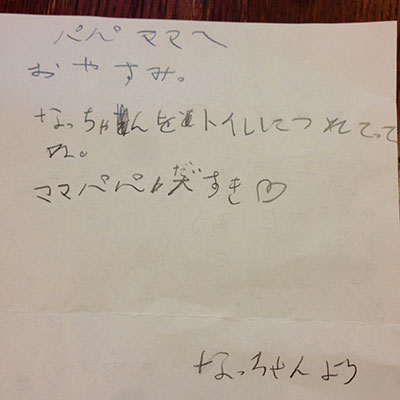 パパママへ
おやすみ。
なっちゃんをトイレにつれてって
ね。
ママパパ大だいすき♡
なっちゃんより